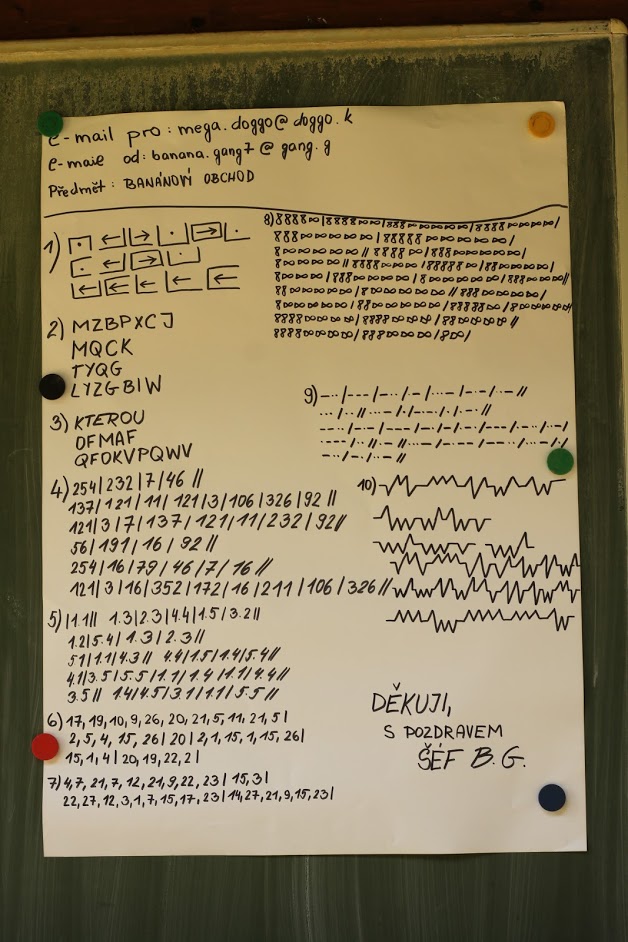 e-mail pro: mega.doggo@doggo.k
e-mail od: banana.gang7@gang.g
Předmět: BANÁNOVÝ OBCHOD
1)
2) MZBPXCJ
MQCK
TYQG
LYZGBIW
3) KTEROU
OFMAF
QFOKVPQWV
4) 254|232|7|46//
137|121|11|121|3|106|326|92//
121|3|7|137|121|11|232|92//
56|191|16|92//
254|16|79|46|7|16//
121|3|16|352|172|16|211|106|326//
5) |1.1|| 1.3|2.3|4.4|1.5|3.2||
1.2|5.4|1.3|2.3//
5.1|1.1|4.3|| 4.4|1.5|1.4|5.4//
4.1|3.5|5.5|1.1|1.4|1.1|4.4//
3.5|| 1.4|4.5|3.1|1.1|5.5//
6) 17,19,10,9,26,20,21,5,11,21,5|
2,5,4,15,26|20|2,1,15,1,15,26|
15,1,4|20,19,22,2|
7) 4,7,21,7,12,21,9,22,23|15,3|
22,27,12,3,1,7,15,17,23|14,27,21,9,15,23|
8)
9)
10)
DĚKUJI,
S POZDRAVEM
ŠÉF B.G.